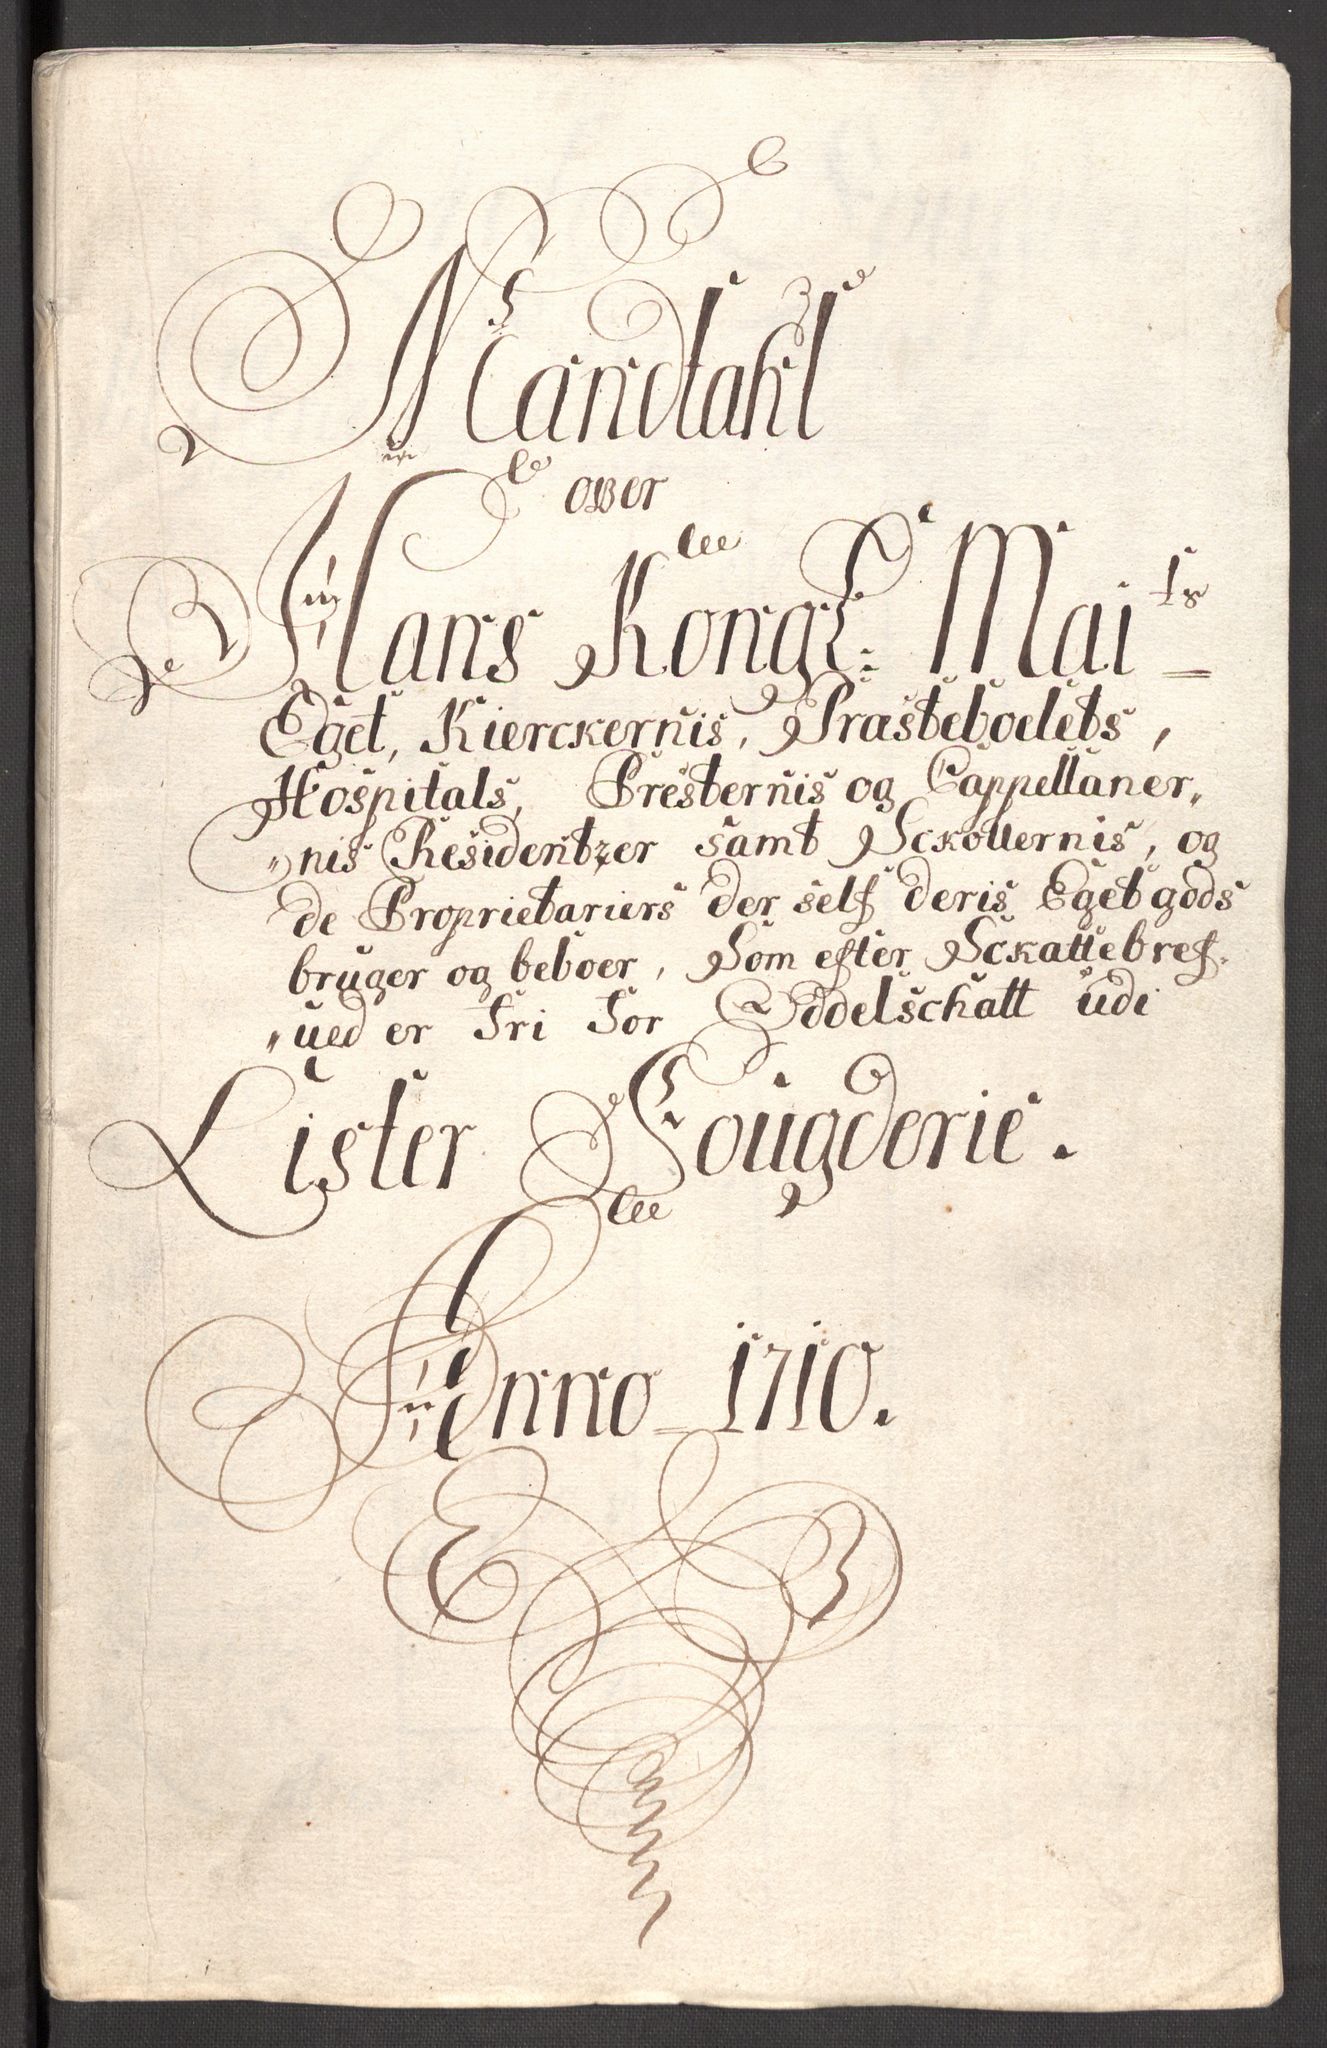 Mandtahl
over
Hans Kongl: Mai^ts
Eget, Kierckernis, Præsteboelets,
Hospitals, Presternis og Cappellaner„
„nis Residentzer samt Sckollernis, og
de Proprietariers der self deris Eget gods
bruger og beboer, Som efter Sckattebref„
„ued er fri for Oddelschatt udi
Lister Fougderie.
Anno 1710.